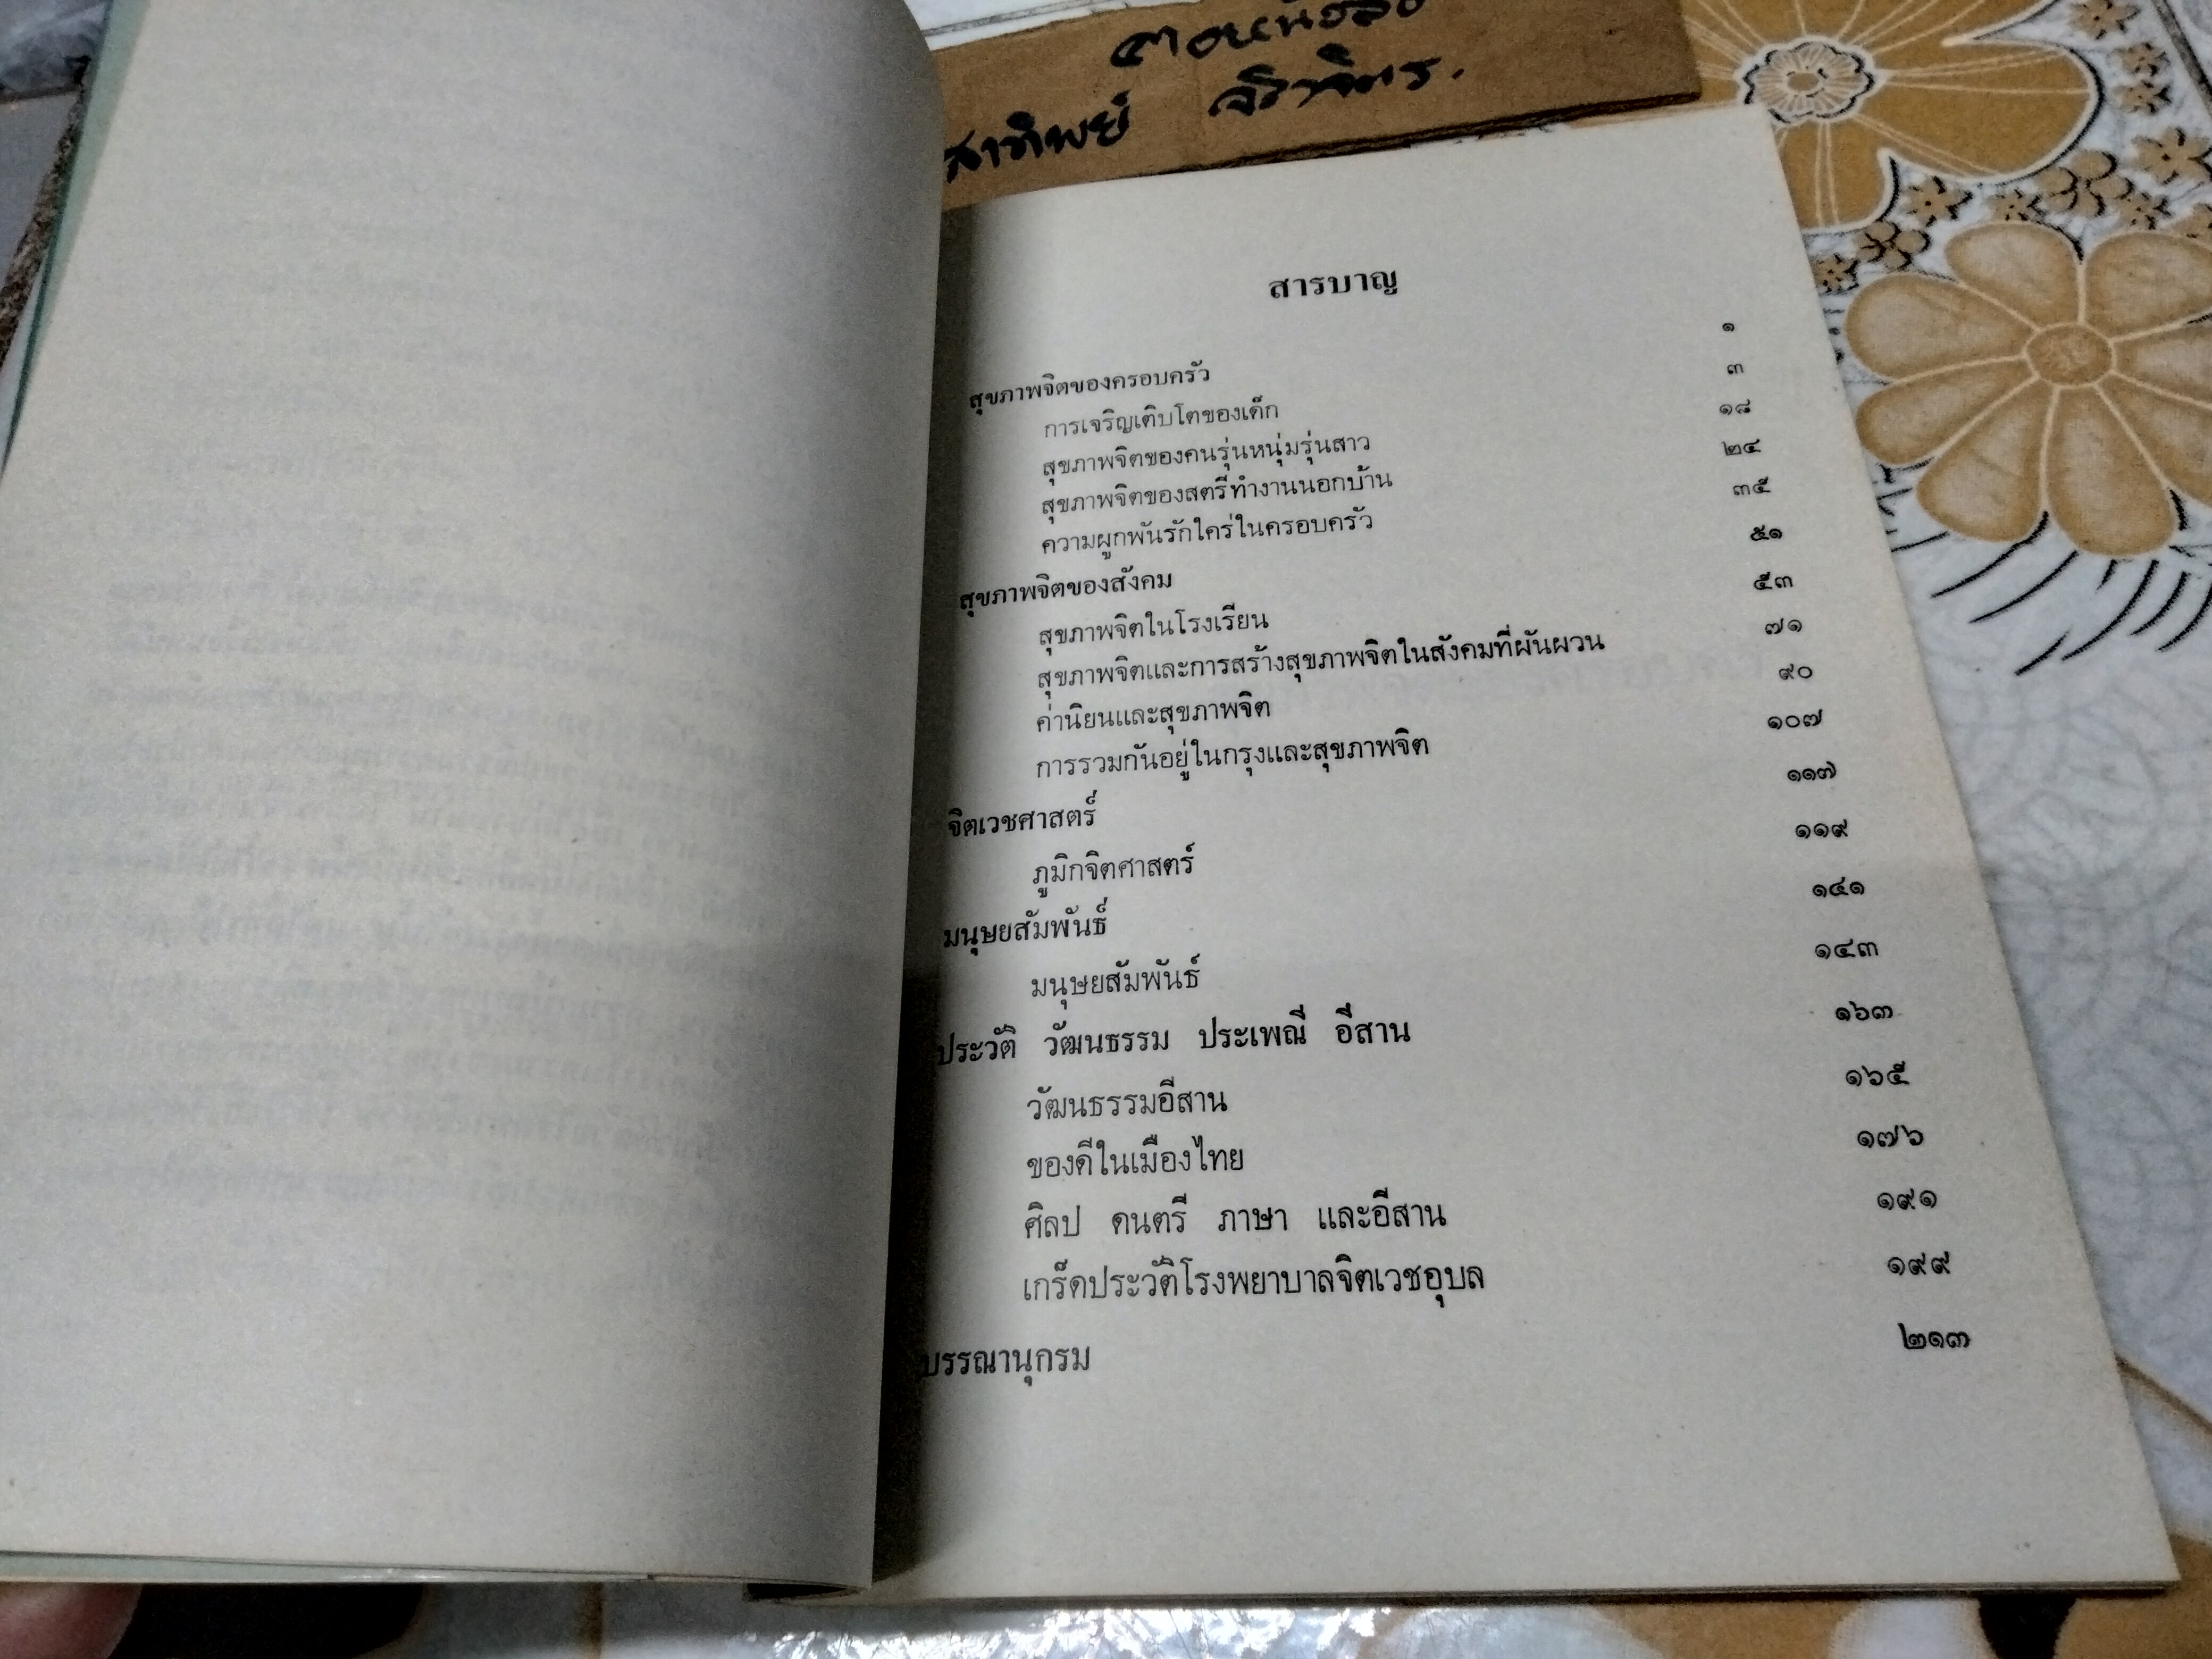 สาทิพย์
สารบาญ
สุขภาพจิตของครอบครัว ๑
การเจริญเติบโตของเด็ก ๓
สุขภาพจิตของคนรุ่นหนุ่มรุ่นสาว ๑๘
สุขภาพจิตของสตรีทำงานนอกบ้าน ๒๔
ความผูกพันรักใคร่ในครอบครัว ๓๕
สุขภาพจิตของสังคม ๕๑
สุขภาพจิตในโรงเรียน ๕๓
สุขภาพจิตและการสร้างสุขภาพจิตในสังคมที่ผันผวน ๗๑
ค่านิยมและสุขภาพจิต ๙๐
การรวมกันอยู่ในกรุงและสุขภาพจิต ๑๐๗
จิตเวชศาสตร์ ๑๑๗
ภูมิกจิตศาสตร์ ๑๑๙
มนุษยสัมพันธ์ ๑๔๑
มนุษยสัมพันธ์ ๑๔๓
ประวัติ วัฒนธรรม ประเพณี อีสาน ๑๖๓
วัฒนธรรมอีสาน ๑๖๕
ของดีในเมืองไทย ๑๗๖
ศิลป ดนตรี ภาษา และอีสาน ๑๙๑
เกร็ดประวัติโรงพยาบาลจิตเวชอุบล ๑๙๙
บรรณานุกรม ๒๑๓